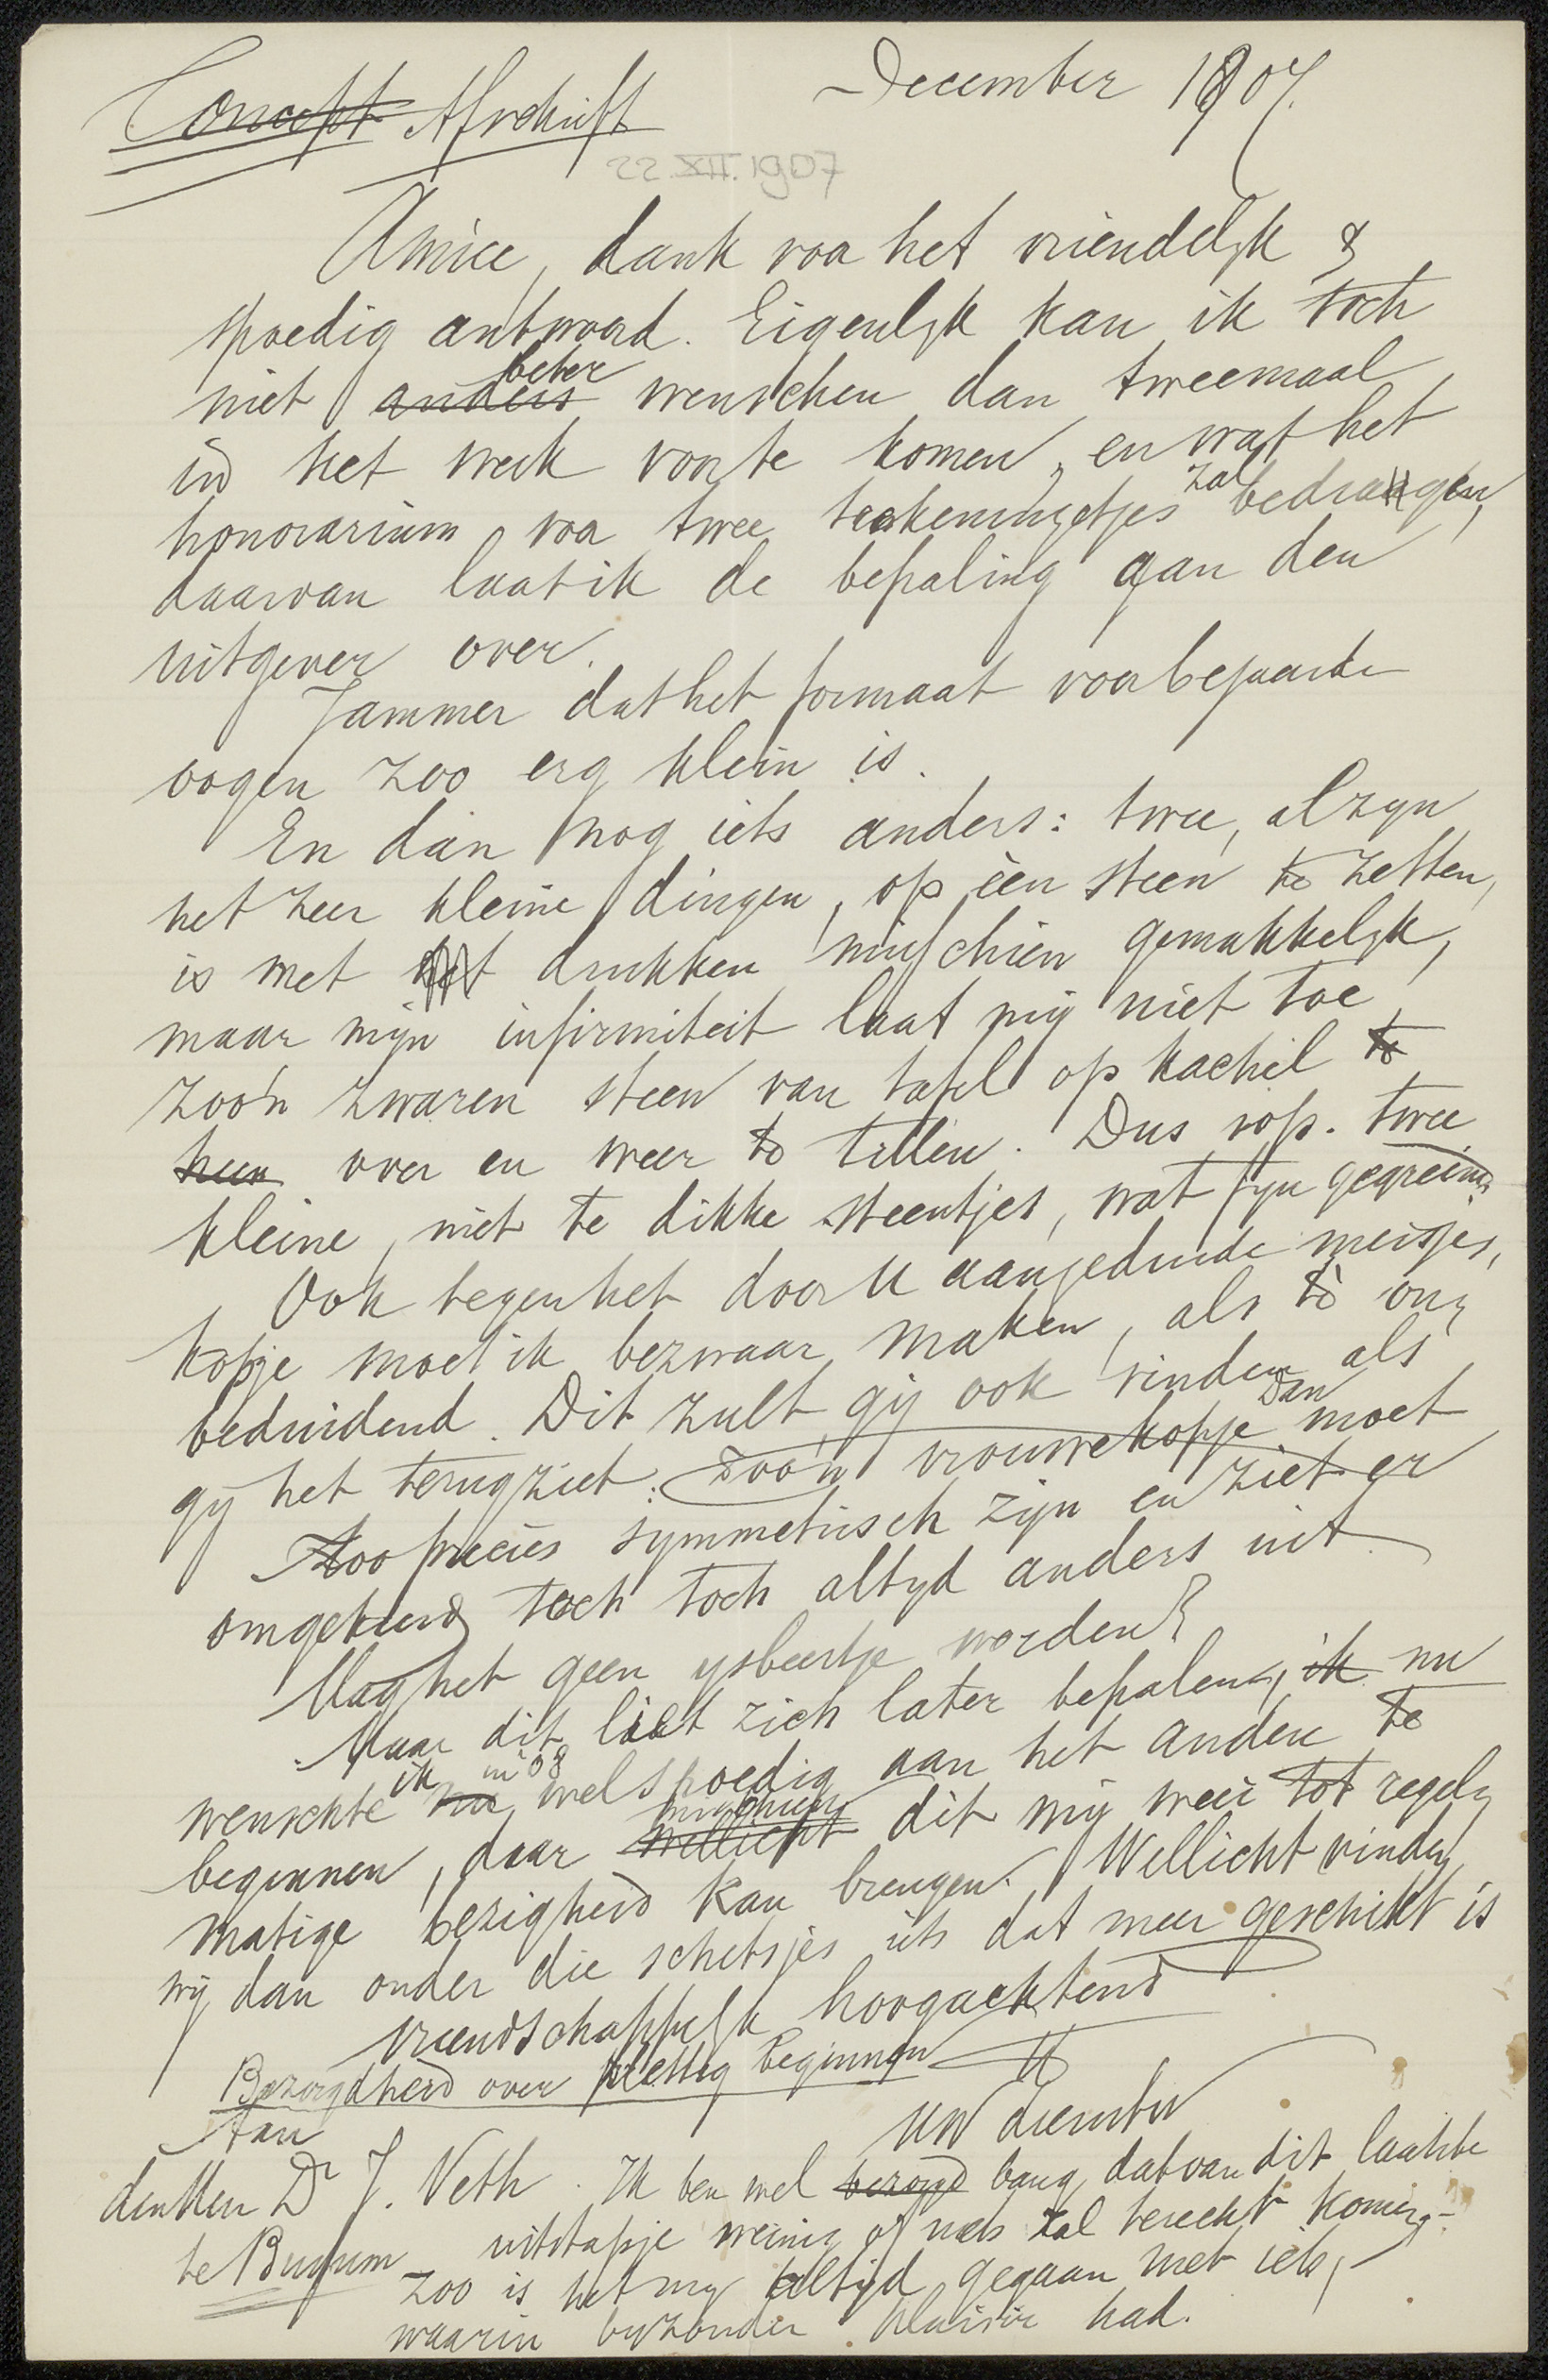 Concept Afschrift
December 1907.
22.XII.1907
Amice, dank voor het vriendelijk &
spoedig antwoord. Eigenlijk kan ik toch
niet anders beter wenschen dan tweemaal
in het werk voor te komen, en wat het
honorarium voor twee teekeningetjes zal bedragen,
daarvan laat ik de bepaling aan den
uitgever over.
Jammer dat het formaat voor bejaarde
oogen zoo erg klein is.
En dan nog iets anders: twee, al zyn
het zeer kleine dingen, op één steen te zetten,
is met het drukken misschien gemakkelyk,
maar mijn infirmiteit laat mij niet toe
zoo'n zwaren steen van tafel op kachel te
heen over en weer te tillen. Dus s.v.p. twee
kleine, niet te dikke steentjes, wat fyn gegreind
Ook tegen het door U aangeduide meisjes,
kopje moet ik bezwaar maken, als te on,
beduidend. Dit zult gij ook vinden als
gij het terugziet: zoo'n vrouwekopje dan moet
zoo precies symmetrisch zijn en ziet er
omgekeerd toch toch altyd anders uit.
Mag het geen ysbeertje worden?
Maar dit liet zich later bepalen, ik nu
wenschte ik nu in 08 wel spoedig aan het andere te
beginnen, daar wellicht misschien dit mij weer tot regel,
matige bezigheid kan brengen. Wellicht vinden
wij dan onder die schetsjes iets dat meer geschikt is
vriendschappelyk hoogachtend
Bezorgdheid over prettig beginnen
Aan
Uw dienstw
den Heer Dr J. Veth. Ik ben wel bezorgd bang, dat van dit laatste
te Bussum uitstapje weinig of niets zal terecht komen,-
zoo is het my altijd gegaan met iets,
waarin byzonder pleisir had.